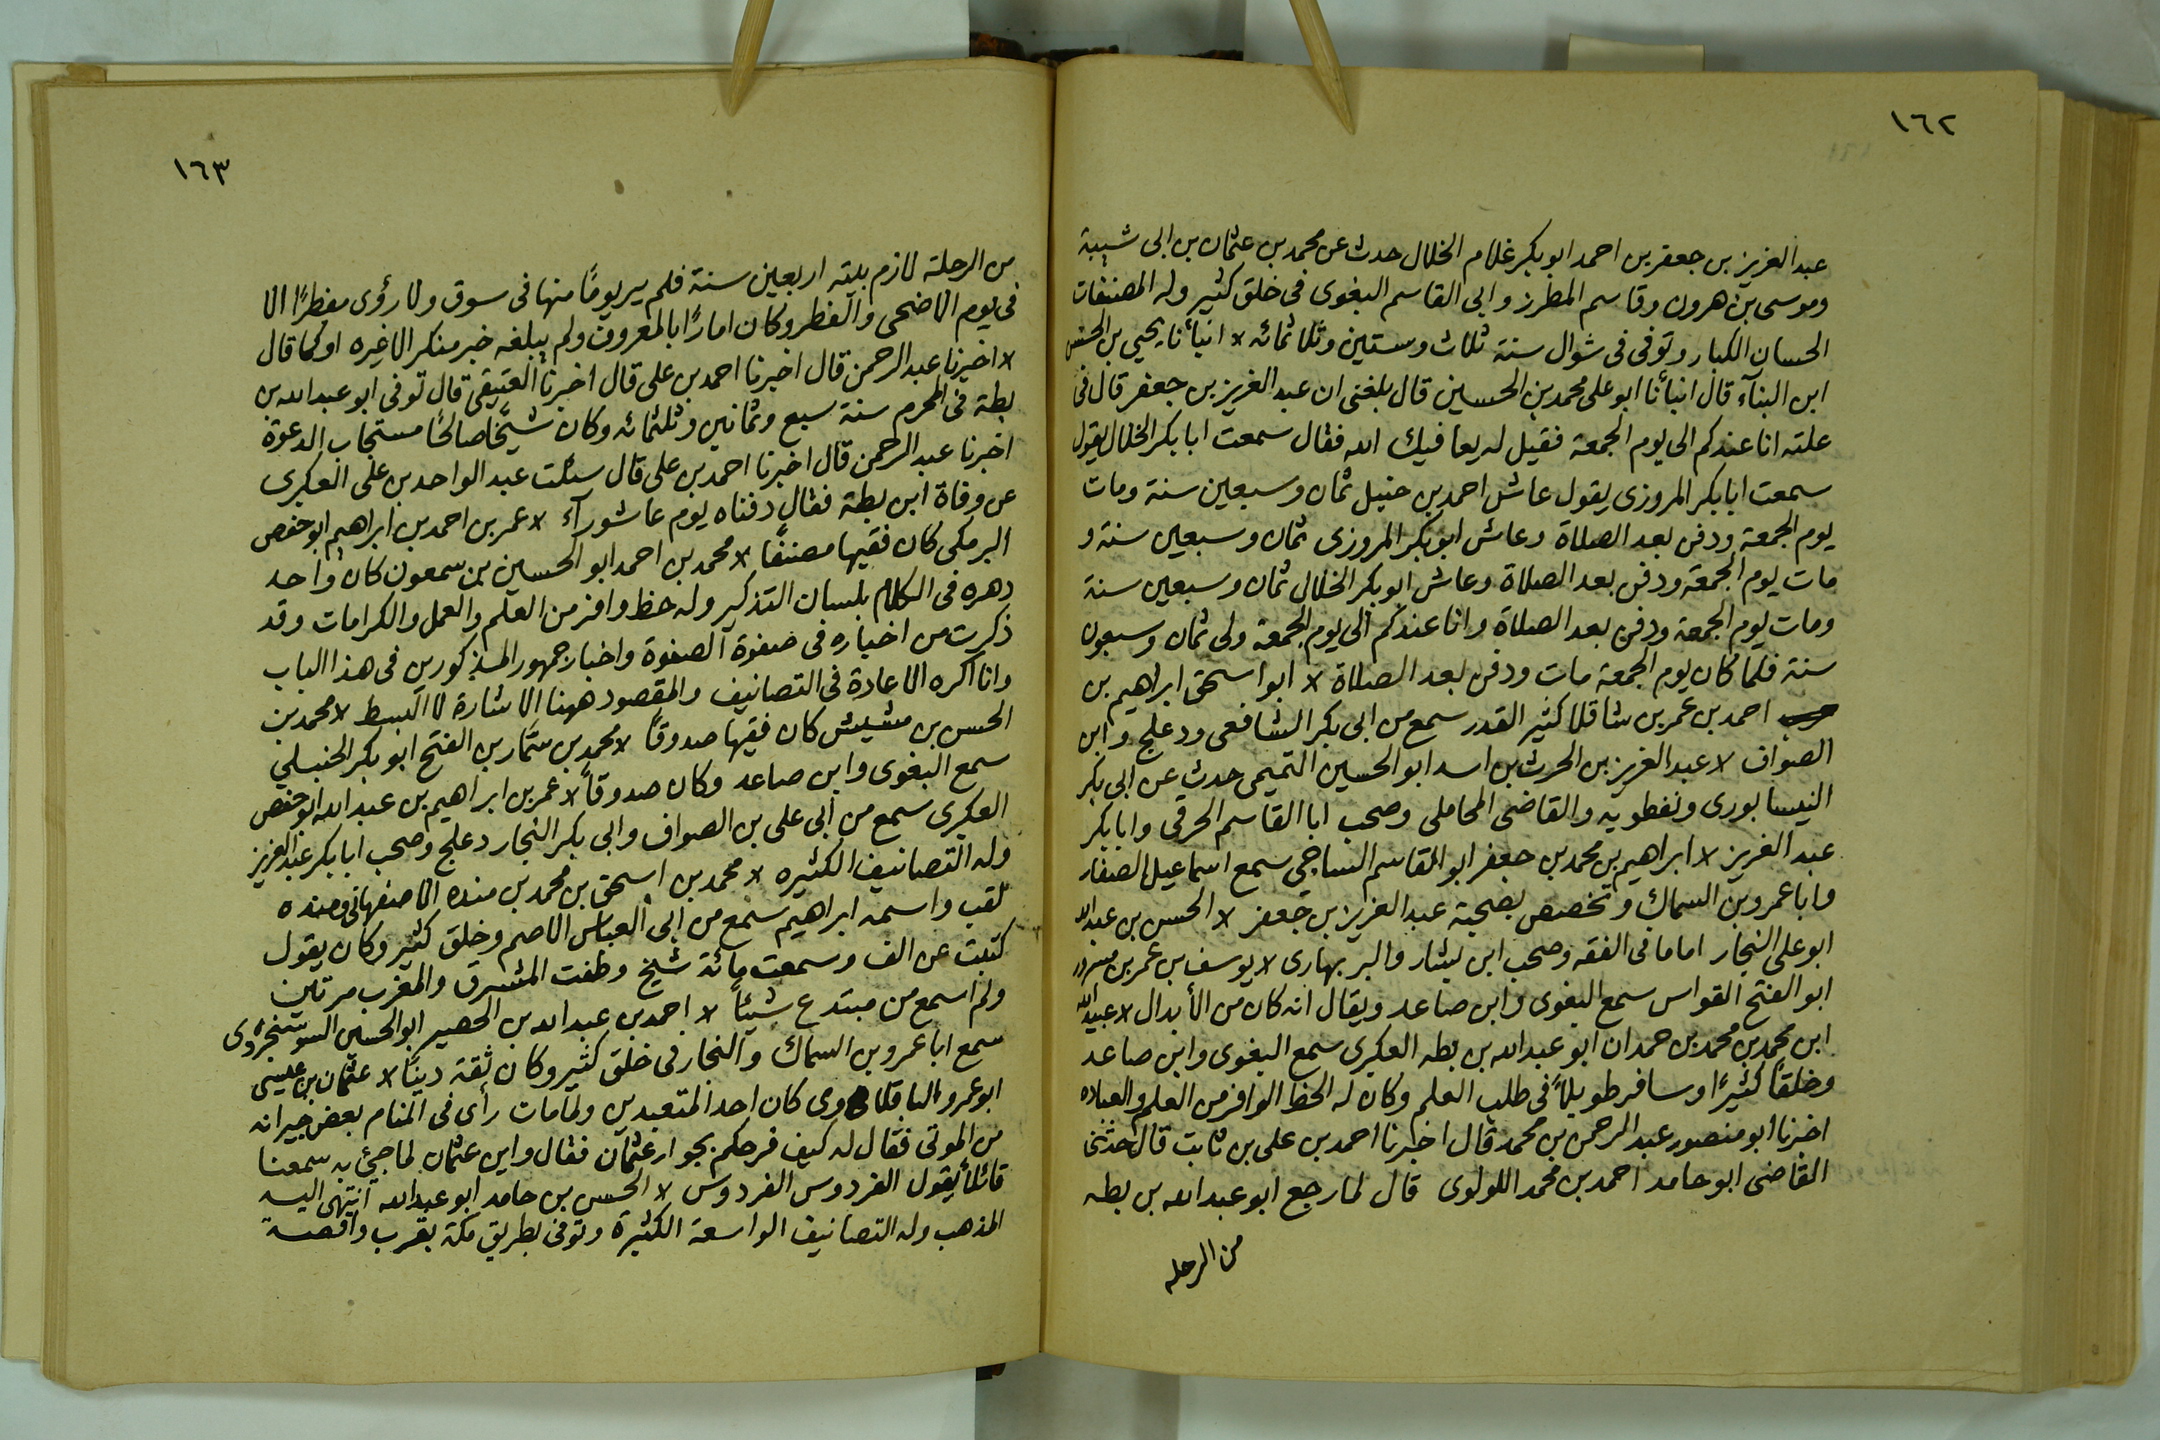 ١٦٢
عبد العزيز بن جعفر بن احمد ابو بكر غلام الخلال حدث عن محمد بن عثمان بن ابى شيبة
وموسى بن هرون وقاسم المطرز وابى القاسم البغوى فى خلق كثير وله المصنفات
الحسان الكبار وتوفى فى شوال سنة ثلاث وستين وثلاثمائه لا انبأنا يحيى بن الحسن
ابن البنآء قال انبأنا ابو على محمد بن الحسين قال بلغنى ان عبد العزيز بن جعفر قال فى
علته انا عندكم الى يوم الجمعة فقيل له يعافيك الله فقال سمعت ابا بكر الخلال يقول
سمعت ابا بكر المروزى يقول عاش احمد بن حنبل ثمان وسبعين سنة ومات
يوم الجمعة ودفن بعد الصلاة وعاش ابو بكر المروزى ثمان وسبعين سنة و
مات يوم الجمعة ودفن بعد الصلاة وعاش ابو بكر الخلال ثمان وسبعين سنة
ومات يوم الجمعة ودفن بعد الصلاة وانا عندكم الى يوم الجمعة ولى ثمان وسبعون
سنة فلما كان يوم الجمعة مات ودفن بعد الصلاة لا ابو اسحق ابراهيم بن
احمد بن عمر بن شاقلا كثير القدر سمع من ابى بكر الشافعى ودعلج وابن
الصواف لا عبد العزيز بن الحرث بن اسد ابو الحسين التميمى حدث عن ابى بكر
النيسابورى ونفطويه والقاضى المحاملى وصحب ابا القاسم الخرقى وابا بكر
عبد العزيز لا ابراهيم بن محمد بن جعفر ابو القاسم الساجى سمع اسماعيل الصفار
وابا عمرو بن السماك وتخصص بصحبة عبد العزيز بن جعفر لا الحسن بن عبد الله
ابو على النجار اماما فى الفقه وصحب ابن بشار والبربهارى لا يوسف بن عمر بن مسرور
ابو الفتح القواس سمع البغوى وابن صاعد ويقال انه كان من الأبدال لا عبيد الله
ابن محمد بن محمد بن حمدان ابو عبد الله بن بطه العكبرى سمع البغوى وابن صاعد
وخلقًا كثيرًا وسافر طويلاً فى طلب العلم وكان له الحظ الوافر من العلم والعباده
اخبرنا ابو منصور عبد الرحمن بن محمد قال اخبرنا احمد بن على بن ثابت قال حدثنى
القاضى ابو حامد احمد بن محمد اللولوى قال لما رجع ابو عبد الله بن بطه
من الرحله
١٦٣
من الرحلة لازم بيته اربعين سنة فلم ير يومًا منها فى سوق ولا رؤى مفطرًا الا
فى يوم الاضحى والفطر وكان امارًا بالمعروف ولم يبلغه خبر منكر الا غيره او كما قال
لا اخبرنا عبد الرحمن قال اخبرنا احمد بن على قال اخبرنا العتيقى قال توفى ابو عبد الله بن
بطة فى المحرم سنة سبع وثمانين وثلثمائه وكان شيخًا صالحًا مستجاب الدعوة
اخبرنا عبد الرحمن قال اخبرنا احمد بن على قال سئلت عبد الواحد بن على العكبرى
عن وفاة ابن بطة فقال دفناه يوم عاشورآء لا عمر بن احمد بن ابراهيم ابو حفص
البرمكى كان فقيها مصنفًا لا محمد بن احمد ابو الحسين بن سمعون كان واحد
دهره فى الكلام بلسان التذكير وله حظ وافر من العلم والعمل والكرامات وقد
ذكرت من اخباره فى صفوة الصفوة واخبار جمهور المذكورين فى هذا الباب
وانا اكره الاعادة فى التصانيف والمقصود ههنا الاشارة لا البسط لا محمد بن
الحسن بن مشيش كان فقيها صدوقًا لا محمد بن سمّار بن الفتح ابو بكر الحنبلي
سمع البغوى وابن صاعد وكان صدوقًا لا عمر بن ابراهيم بن عبد الله ابو حفص
العكبرى سمع من ابى على بن الصواف وابى بكر النجار دعلج وصحب ابا بكر عبد العزيز
وله التصانيف الكثيره لا محمد بن اسحق بن محمد بن منده الاصفهانى ومنده
لقب واسمه ابراهيم سمع من ابى العباس الاصم وخلق كثير وكان يقول
كتبت عن الف وسمعت مائة شيخ وطفت المشرق والمغرب مرتين
ولم اسمع من مبتدع شيئاً لا احمد بن عبد الله بن الحصير ابو الحسين السوسنجردى
سمع ابا عمرو بن السماك والنجار فى خلق كثير وكان ثقة دينًا لا عثمان بن عيسى
ابو عمرو الباقلاوى كان احد المتعبدين ولما مات رأى فى المنام بعض جيرانه
من الموتى فقال له كيف فرحكم بجوار عثمان فقال واين عثمان لما جيئ به سمعنا
قائلًا يقول الفردوس الفردوس لا الحسن بن حامد ابو عبد الله انتهى اليه
المذهب وله التصانيف الواسعة الكثيرة وتوفى بطريق مكة بقرب واقصة